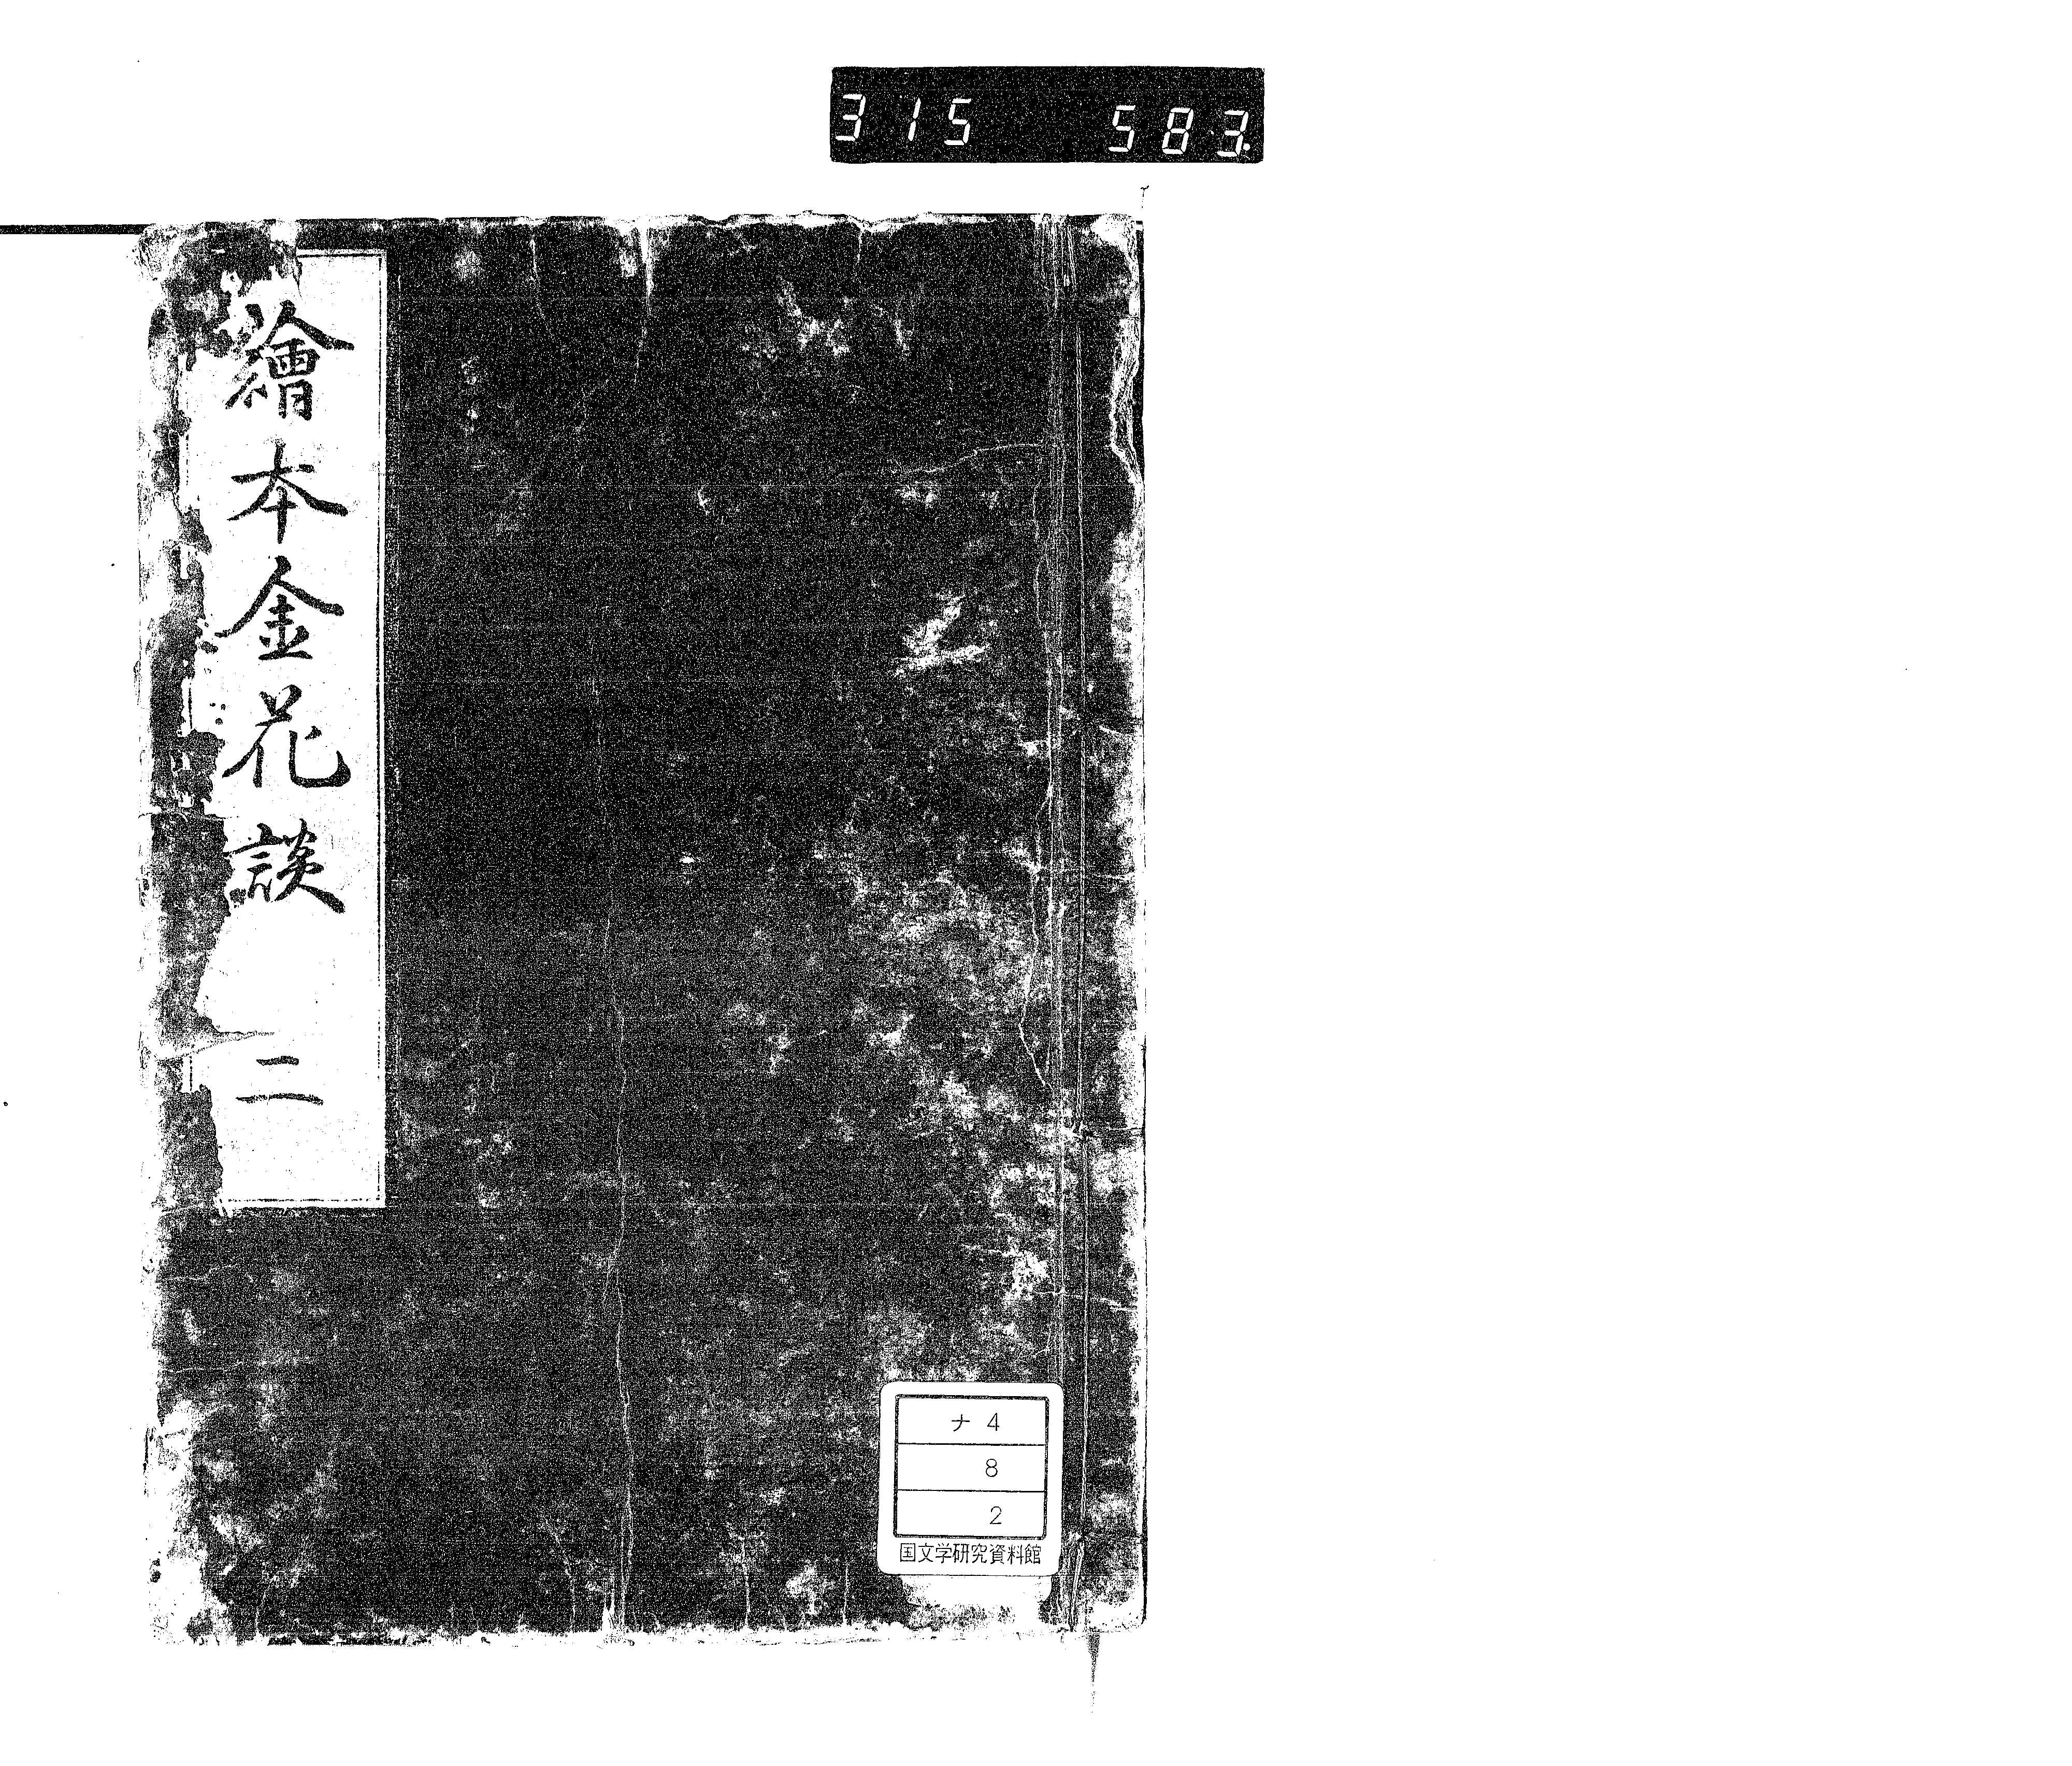 315 583.
繪本金花談 二
ナ 4
8
2
国文学研究資料館